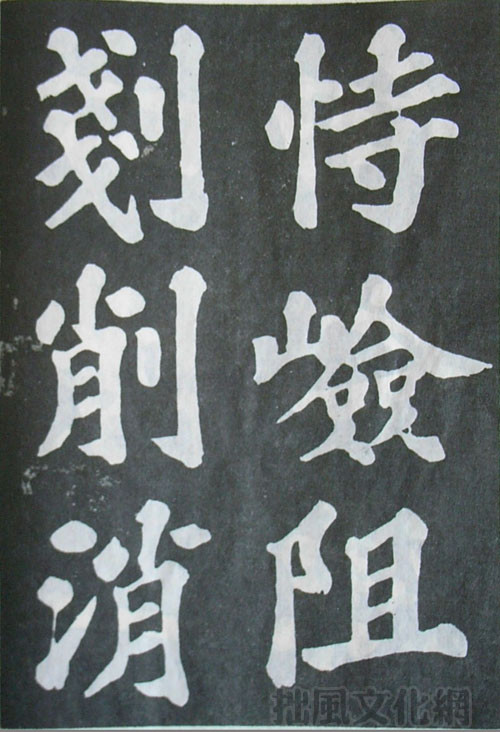 恃嶮阻
剗削消
拙風文化網